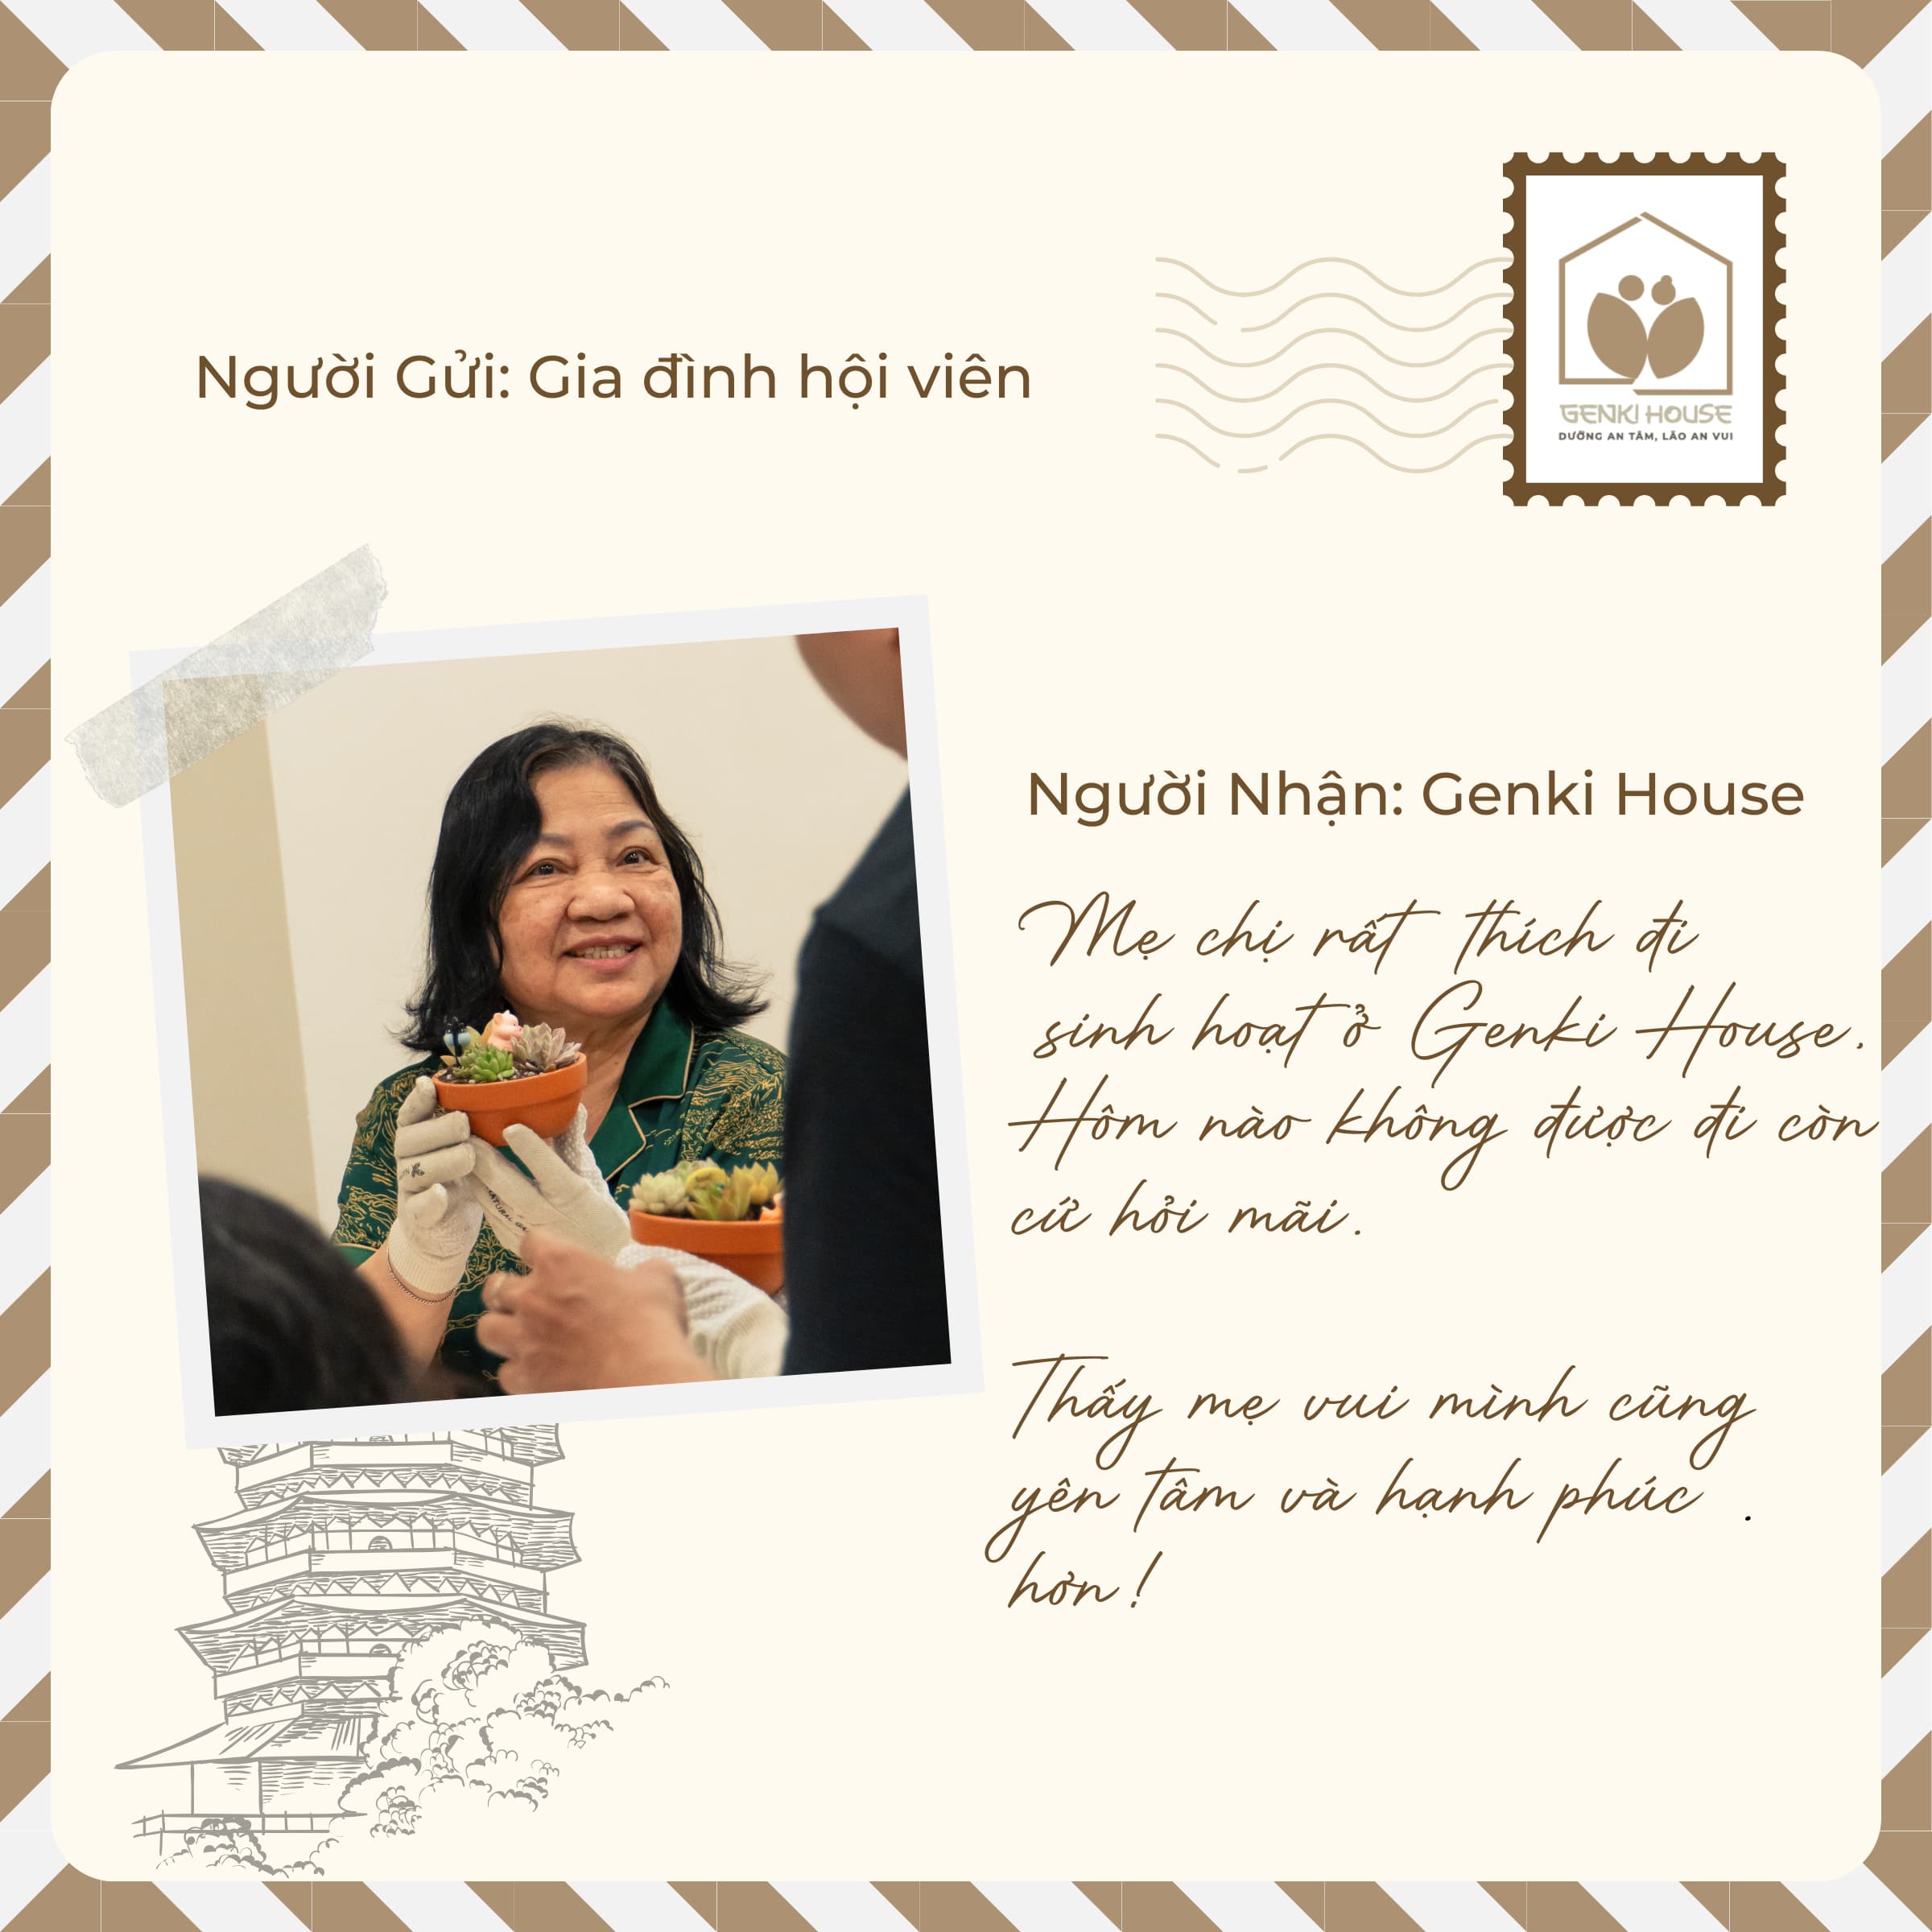 GENKI HOUSE
DƯỠNG AN TÂM, LÃO AN VUI
Người Gửi: Gia đình hội viên
Người Nhận: Genki House
Mẹ chị rất thích đi
sinh hoạt ở Genki House.
Hôm nào không được đi còn
cứ hỏi mãi.
Thấy mẹ vui mình cũng
yên tâm và hạnh phúc .
hơn!